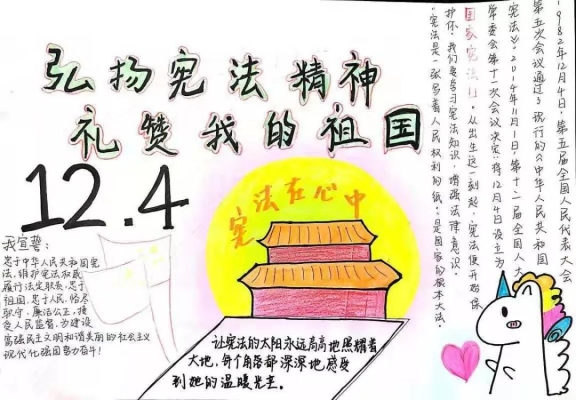 弘扬宪法精神
礼赞我的祖国
12.4
宪法在心中
1982年12月4日,第五届全国人民代表大会
第五次会议通过了现行的《中华人民共和国
宪法》。2014年11月1日,第十二届全国人大
常委会第十一次会议决定"将12月4日设立为
国家宪法日。从出生这一刻起,宪法便开始保
护你。我们要学习宪法知识,增强法律意识。
"宪法是一张写着人民权利的纸"是国家的根本大法。
我宣誓:
忠于中华人民共和国宪
法,维护宪法权威
履行法定职责,忠于
祖国,忠于人民,恪尽
职守,廉洁公正,接
受人民监督,为建设
富强民主文明和谐美丽的社会主义
现代化强国努力奋斗!
让宪法的太阳永远高高地照耀着
大地,每个角落都深深地感受
到她的温暖光芒。